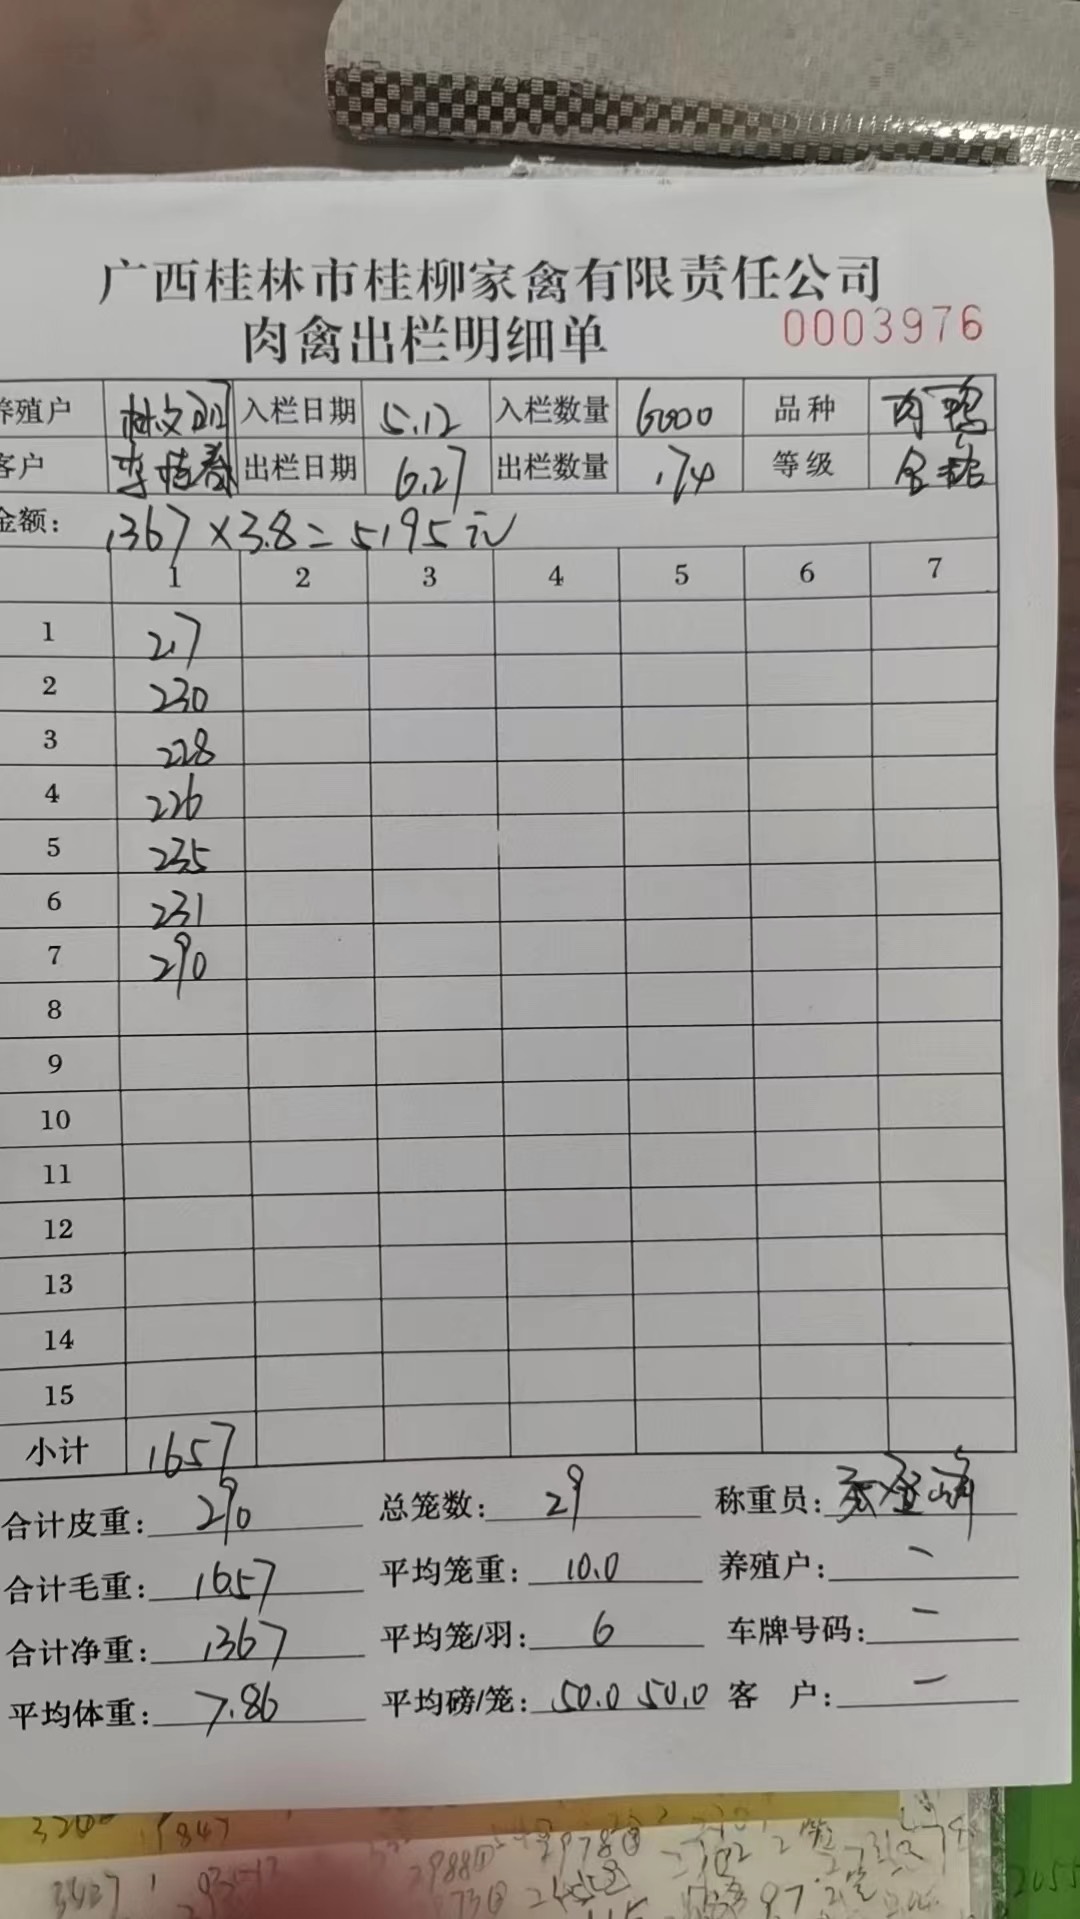 广西桂林市桂柳家禽有限责任公司
肉禽出栏明细单 0003976
养殖户 林文 入栏日期 5.12 入栏数量 6000 品种 肉鸭
客户 李 春 出栏日期 6.27 出栏数量 174 等级
金额: 1367×3.8=5195元
1 2 3 4 5 6 7
1 217
2 230
3 228
4 226
5 235
6 231
7 290
8
9
10
11
12
13
14
15
小计 1657
合计皮重: 290 总笼数: 29 称重员:
合计毛重: 1657 平均笼重: 10.0 养殖户: 一
合计净重: 1367 平均笼/羽: 6 车牌号码: 一
平均体重: 7.86 平均磅/笼: 50.0 50.0 客 户: 一
3427